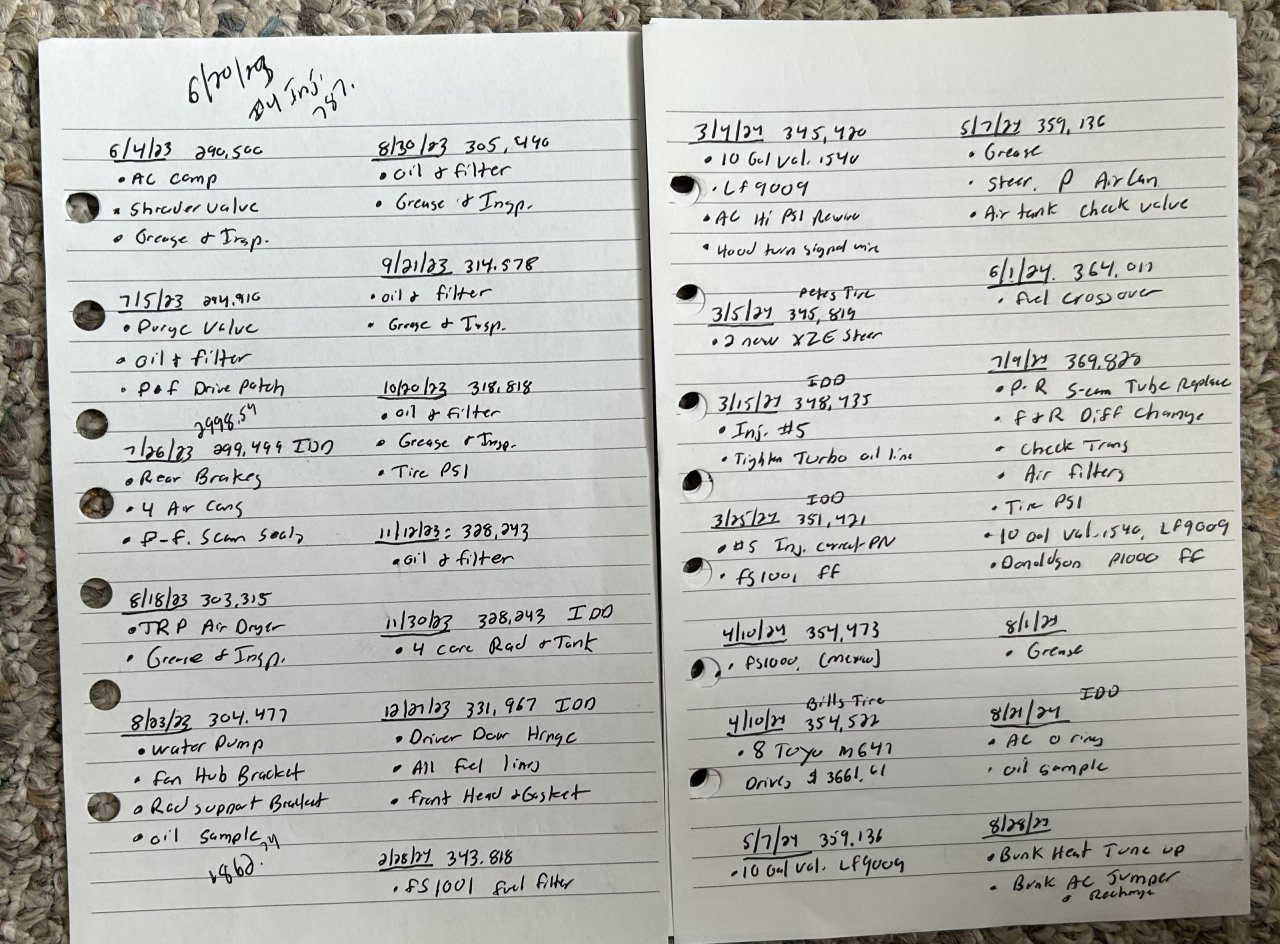 6/20/23
#4 Inj.
787.
6/4/23 290,500
• AC Comp
• Shrader Valve
• Grease & Insp.
7/5/23 294,916
• Purge Valve
• oil & filter
• P-F Drive Patch
2998.54
7/26/23 299,499 IDD
• Rear Brakes
• 4 Air Cans
• P-F. Scam Seals
8/18/23 303,315
• TRP Air Dryer
• Grease & Insp.
8/23/23 304,477
• Water Pump
• Fan Hub Bracket
• Rad support Bracket
• oil sample
1862.74
8/30/23 305,440
• oil & filter
• Grease & Insp.
9/21/23 314,578
• oil & filter
• Grease & Insp.
10/20/23 318,818
• oil & filter
• Grease & Insp.
• Tire PSI
11/12/23: 328,243
• oil & filter
11/30/23 328,243 IDD
• 4 core Rad & Tank
12/21/23 331,967 IDD
• Driver Door Hinge
• All fuel lines
• front Head & Gasket
2/28/24 343,818
• FS1001 fuel filter
3/4/24 345,420
• 10 Gal Val. 1540
• LF9009
• AC Hi PSI Rewire
• Hood turn signal wire
Petes Tire
3/5/24 345,819
• 2 new XZE Steer
IDD
3/15/24 348,435
• Inj. #5
• Tighten Turbo oil line
IDD
3/25/24 351,421
• #5 Inj. correct PN
• FS1001 FF
4/10/24 354,473
• FS1000,
Bills Tire
4/10/24 354,522
• 8 Toyo M647
Drives $3661.61
5/7/24 359,136
• 10 Gal Val. LF9009
5/7/24 359,136
• Grease
• Steer. P Air Can
• Air tank check valve
6/1/24. 364,017
• Fuel crossover
7/9/24 369,828
• P-R S-cam Tube Replace
• F & R Diff Change
• Check Trans
• Air filters
• Tire PSI
• 10 Gal Val. 1540, LF9009
• Donaldson P1000 FF
8/1/24
• Grease
IDD
8/21/24
• AC O rings
• oil sample
8/28/23
• Bunk Heat Tune up
• Bunk AC Jumper
• Recharge